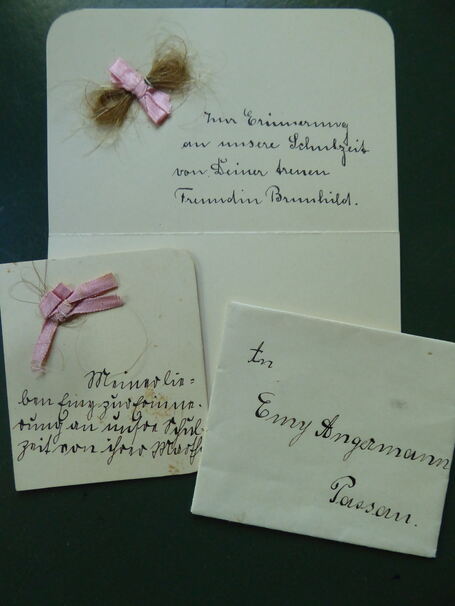 Zur Erinnerung
an unsere Schulzeit
von Deiner treuen
Freundin Brunhild.
Meiner lie=
ben Emy zur Erinne-
rung an unsre Schul
zeit von ihrer Marth
An
Emy Angermann
Passau.